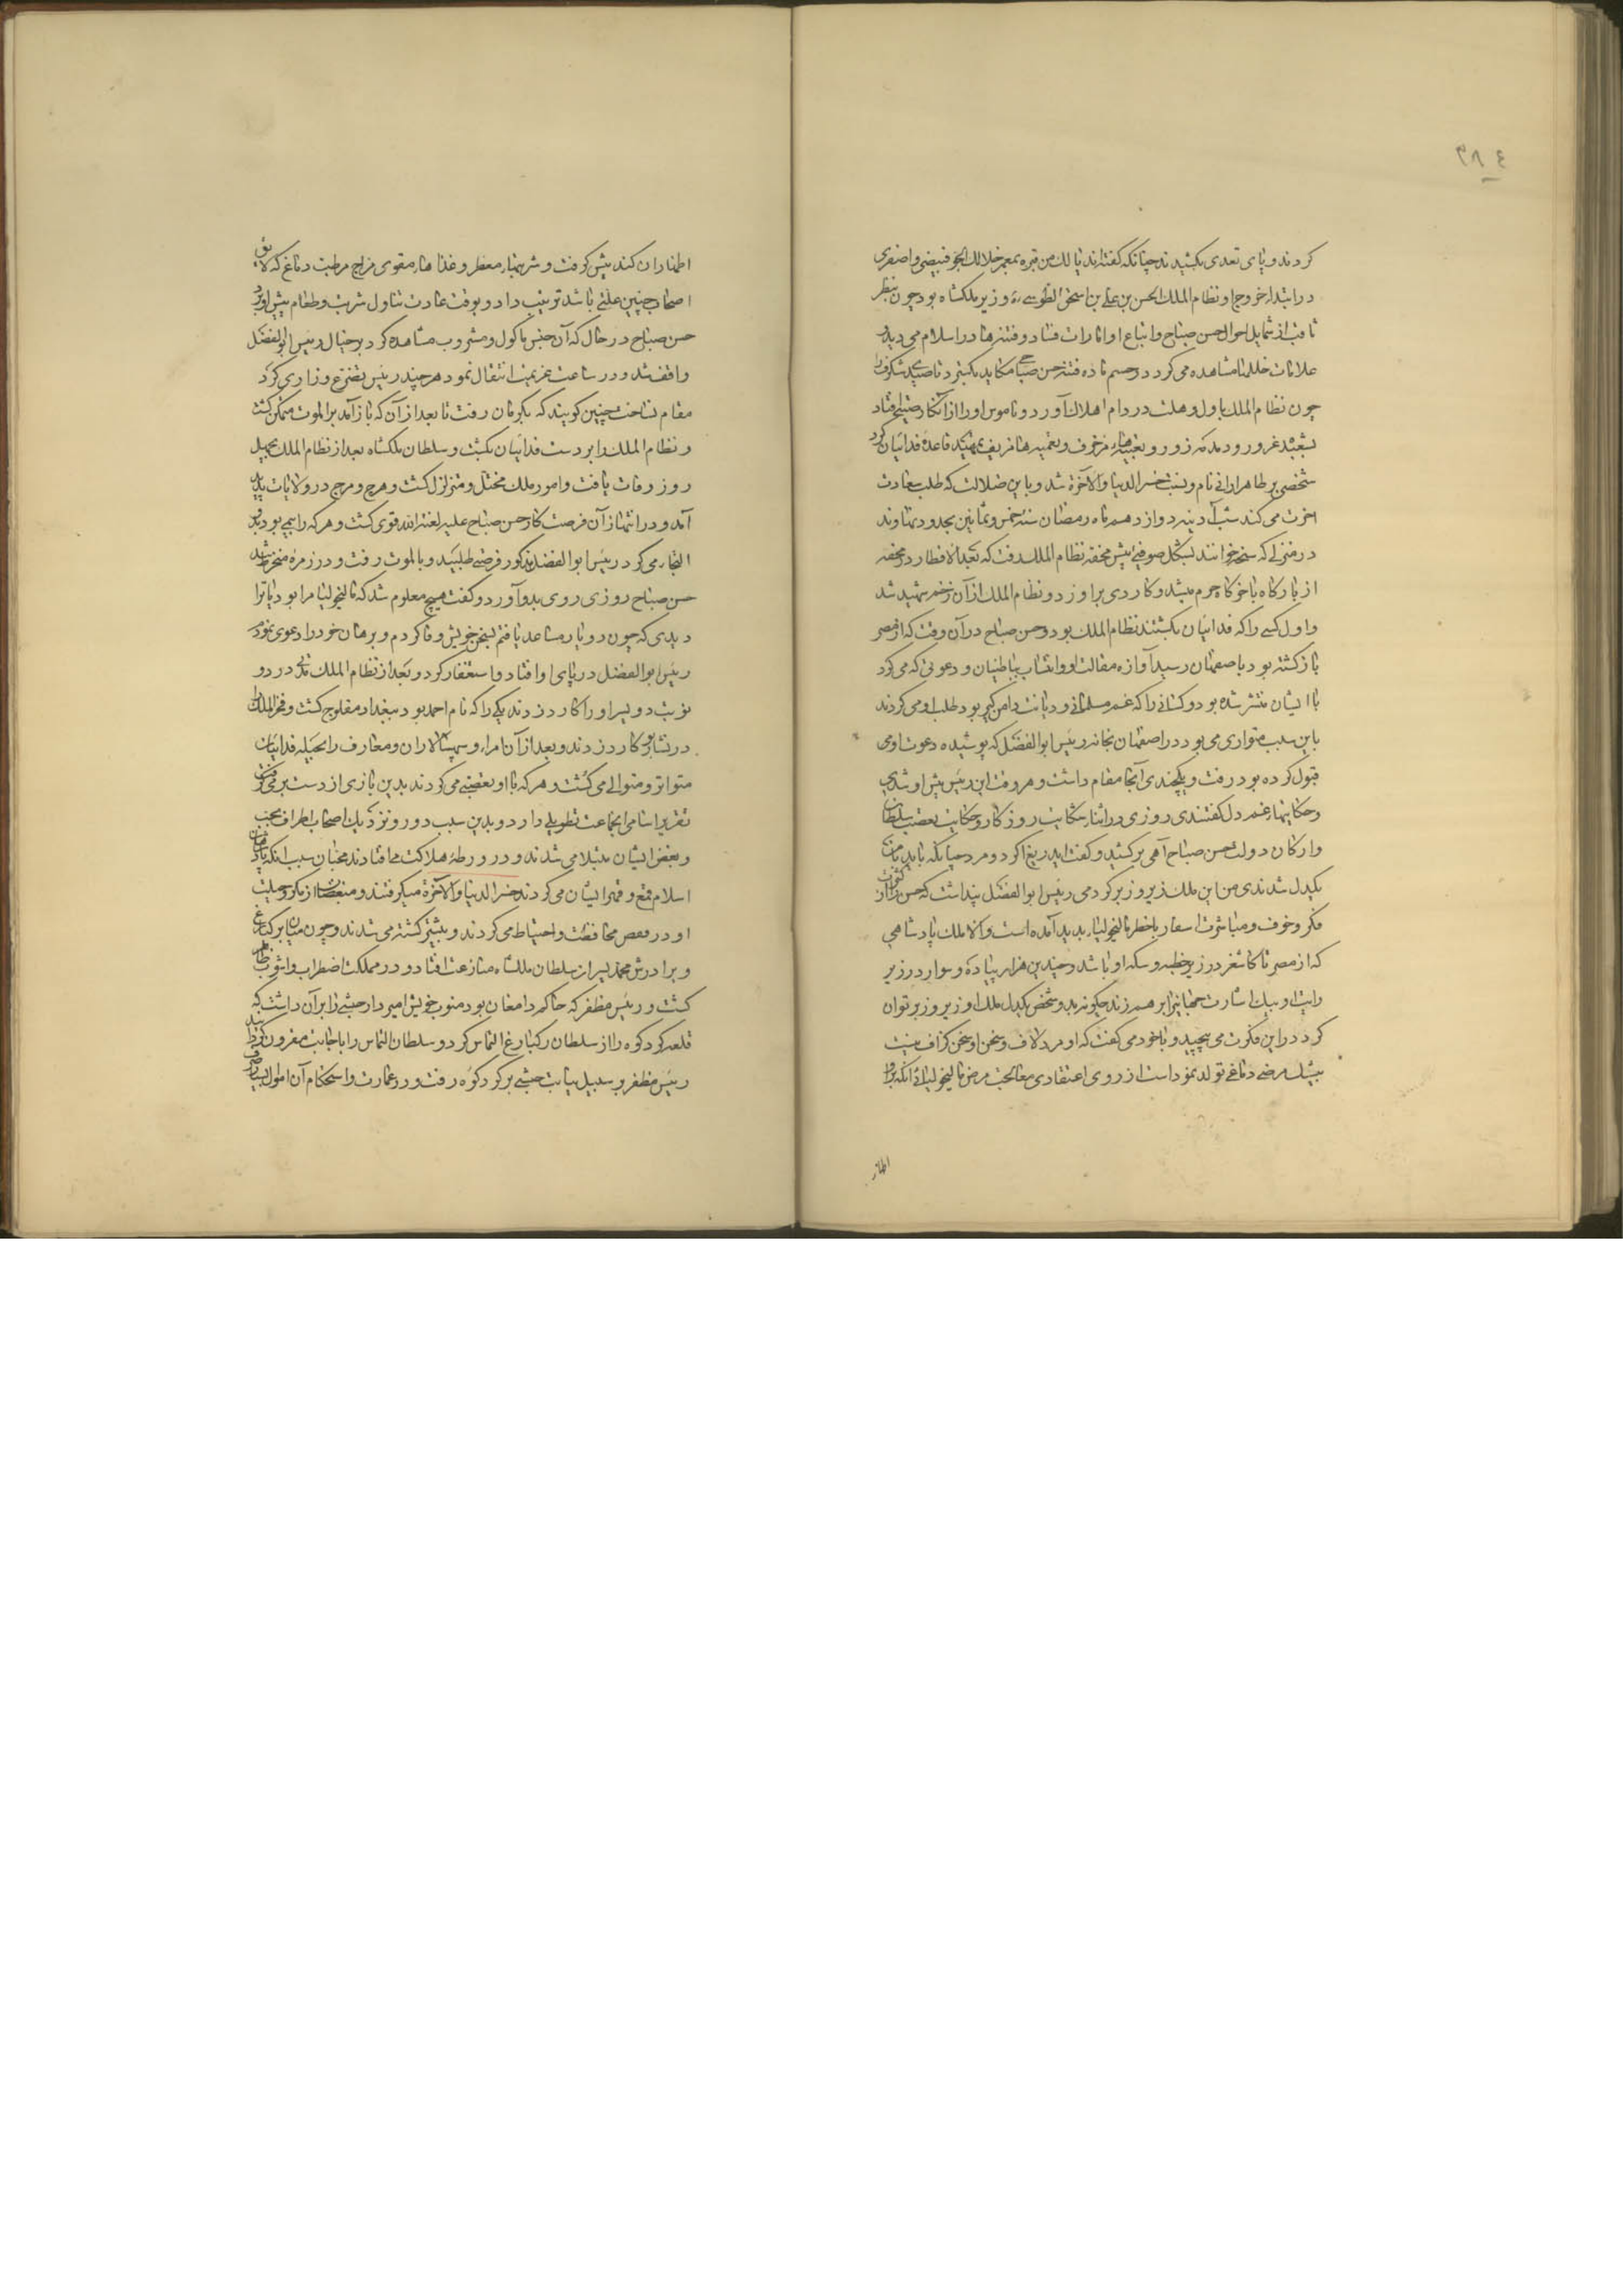 ۳۸٤
کردند و پای تعدی بکشیدند چنانکه گفته اند یا لک من قبرة بمعمر خلا لک الجو فبیضی و اصفری
در ابتداء خروج او نظام الملک الحسن بن علی بن اسحق الطوسی ره وزیر ملکشاه بود چون بنظر
ثاقب از شمایل احوال حسن صباح و اتباع او امارات فساد و فتنه ها در اسلام می دید و
علامات خللها مشاهده می کرد در حسم ماده فتنه حسن صباحی مکاید بگسترد تا صیدی شگرف را
چون نظام الملک باول وهلت در دام اهلاک آورد و ناموس او را از آن کار صیتی افتاد
بشعبده غرور و دمدمه زور و تعبیهاء مزخرف و تعمیه ها مزیف تمهید قاعده فدائیان کرد
شخصی بو طاهر ارانی نام و نسبت خسر الدنیا و الآخرة شد و باین ضلالت که طلب سعادت
اخرت می کند شب آدینه دوازدهم ماه رمضان سنه خمس و ثمانین بحدود نهاوند
در منزلی که سحنه خوانند بشکل صوفیی پیش محفه نظام الملک رفت که بعد الافطار در محفه
از بارگاه با خرگاه حرم میشد و کاردی برو زد و نظام الملک از آن زخم شهید شد
و اول کسی را که فدائیان بکشتند نظام الملک بود و حسن صباح در آن وقت که از مصر
باز گشته بود باصفهان رسید آوازه مقالت او و انتساب بباطنیان و دعوتی که می کرد
با ایشان منتشر شده بود و کسانی را که غم مسلمانی و دیانت دامن گیر بود طلب او می کردند
باین سبب متواری می بود در اصفهان بخانه رئیس ابو الفضل که پوشیده دعوت او می
قبول کرده بود رفت و یکچندی آنجا مقام داشت و هر وقت این رئیس پیش او شدی
و حکایتهاء غم دل گفتندی روزی در اثناء شکایت روزگار و حکایت تعصب سلطان
و ارکان دولت حسن صباح آهی برکشید و گفت ای دریغ اگر دو مرد چنانکه باید با من
یکدل شدندی من این ملک زیر و زبر کردمی رئیس ابو الفضل پنداشت که حسن را از کثرت
فکر و خوف و مباشرت اسفار با خطر مالیخولیا بدید آمده است و الا ملک پادشاهی
که از مصر تا کاشغر در زیر خطبه و سکه او باشد و چندین هزار پیاده و سوار در زیر
رایت او بیک اشارت جهانی را بر هم زنند چگونه بدو شخص یکدل ملک او زیر و زبر توان
کرد در این فکرت می پیچید و با خود می گفت که او مرد لاف و سخن او سخن گزاف نیست
بیشک مرضی دماغی تولد نموداست از روی اعتقادی معالجت مرض مالیخولیا بی آنکه برو
اظهار
اظهار آن کند پیش گرفت و شربتهاء معطر و غذا هاء مقوی مزاج مرطب دماغ که لایق
اصحاب چنین علتی باشد ترتیب داد و بوقت عادت تناول شربت و طعام پیش او برد
حسن صباح در حال که آن جنس ماکول و مشروب مشاهده کرد بر خیال رئیس ابو الفضل
واقف شد و در ساعت عزیمت انتقال نمود هر چند رئیس تضرع و زاری کرد
مقام نساخت چنین گویند که بکرمان رفت تا بعد از آن که باز آمد بر الموت متمکن گشت
و نظام الملک را بر دست فدائیان بکشت و سلطان ملکشاه بعد از نظام الملک بچهل
روز وفات یافت و امور ملک مختل و متزلزل گشت و هرج و مرج در ولایات پدید
آمد و در انتهاز آن فرصت کار حسن صباح علیه لعنة الله قوی گشت و هر که را بیمی بود بدو
التجا می کرد رئیس ابو الفضل مذکور فرصتی طلبید و بالموت رفت و در زمره منخرط شد
حسن صباح روزی روی بدو آورد و گفت هیچ معلوم شد که مالیخولیا مرا بود یا ترا
دیدی که چون دو یار مساعد یافتم بسخن خویش وفا کردم و برهان خود را دعوی نمودم
رئیس ابو الفضل در پای او افتاد و استغفار کرد و بعد از نظام الملک در دو
نوبت دو پسر او را کارد زدند یکی را که نام احمد بود ببغداد مفلوج گشت و فخر الملک را
در نشابور کارد زدند و بعد از آن امراء و سپهسالاران و معارف را بحیله فدائیان
متواتر و متوالی می کشت و هر که با او تعصبی می کردند بدین بازی از دست بر می گرفت
تقریر اسامی جماعت تطویلی دارد و بدین سبب دور و نزدیک اصحاب اطراف بحب
و بغض ایشان مبتلا می شدند و در ورطه هلاکت می افتادند محبان سبب آنکه پادشاهان
اسلام قمع و قهر ایشان می کردند خسر الدنیا و الآخرة میگرفتند و مبغضان از مکر و حیلت
او در قفص محافظت و احتیاط می کردند و بیشتر کشته می شدند و چون میان برکیارغ
و برادرش محمد پسر از سلطان ملکشاه منازعت افتاد و در مملکت اضطراب و آشوب ظاهر
گشت و رئیس مظفر که حاکم دامغان بود منوب خویش امیر داد حبشی را بر آن داشت که
قلعه گرد کوه را از سلطان برکیارغ التماس کرد و سلطان التماس را باجابت مقرون گردانید
رئیس مظفر بر سبیل نیابت حبشی بر گرد کوه رفت و در عمارت و استحکام آن اموال بسیار صرف